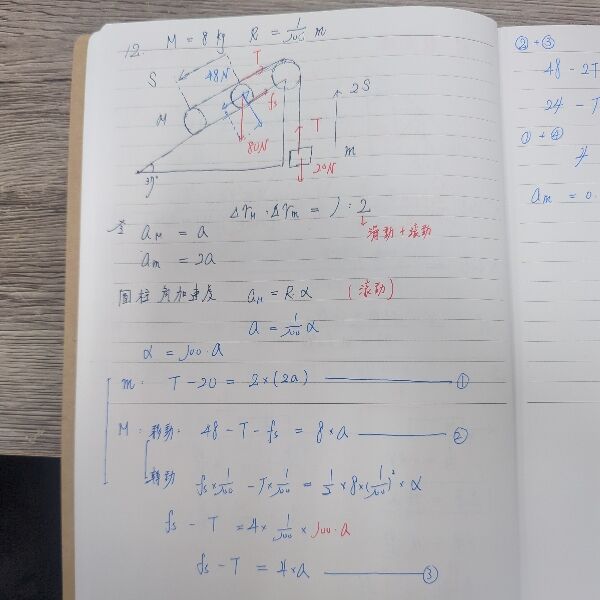 12. M = 8 kg R = 1/100 m
S
48N
T
fs
M
80N
37°
2S
T
m
20N
Δr_M : Δr_m = 1 : 2
滑動 + 滾動
a_M = a
a_m = 2a
圓柱 角加速度 a_M = R·α (滾動)
a = 1/100 α
α = 100·a
m: T - 20 = 2×(2a) ①
M: 移動: 48 - T - fs = 8×a ②
轉動 fs×1/100 - T×1/100 = 1/2×8×(1/100)²×α
fs - T = 4×1/100×100·a
fs - T = 4×a ③
② + ③
48 - 2T
24 - T
① + ④
4
a_m = 0.